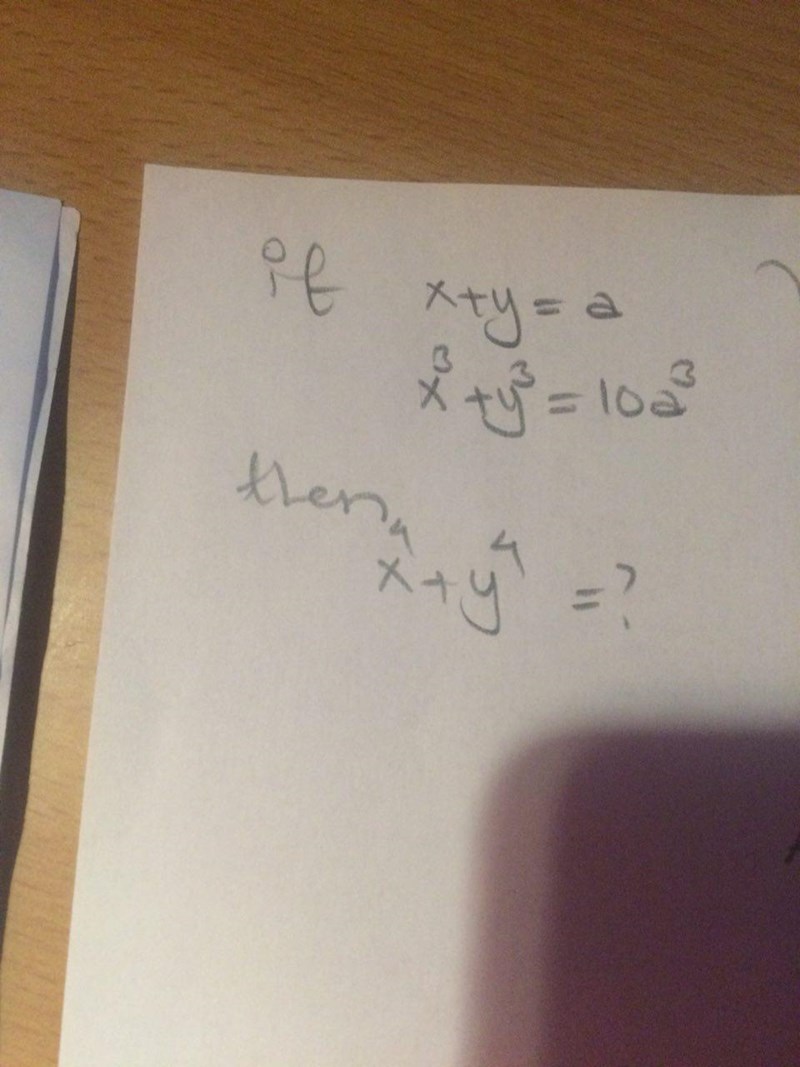 if x+y = a
x³+y³ = 10a³
then
x⁴+y⁴ = ?